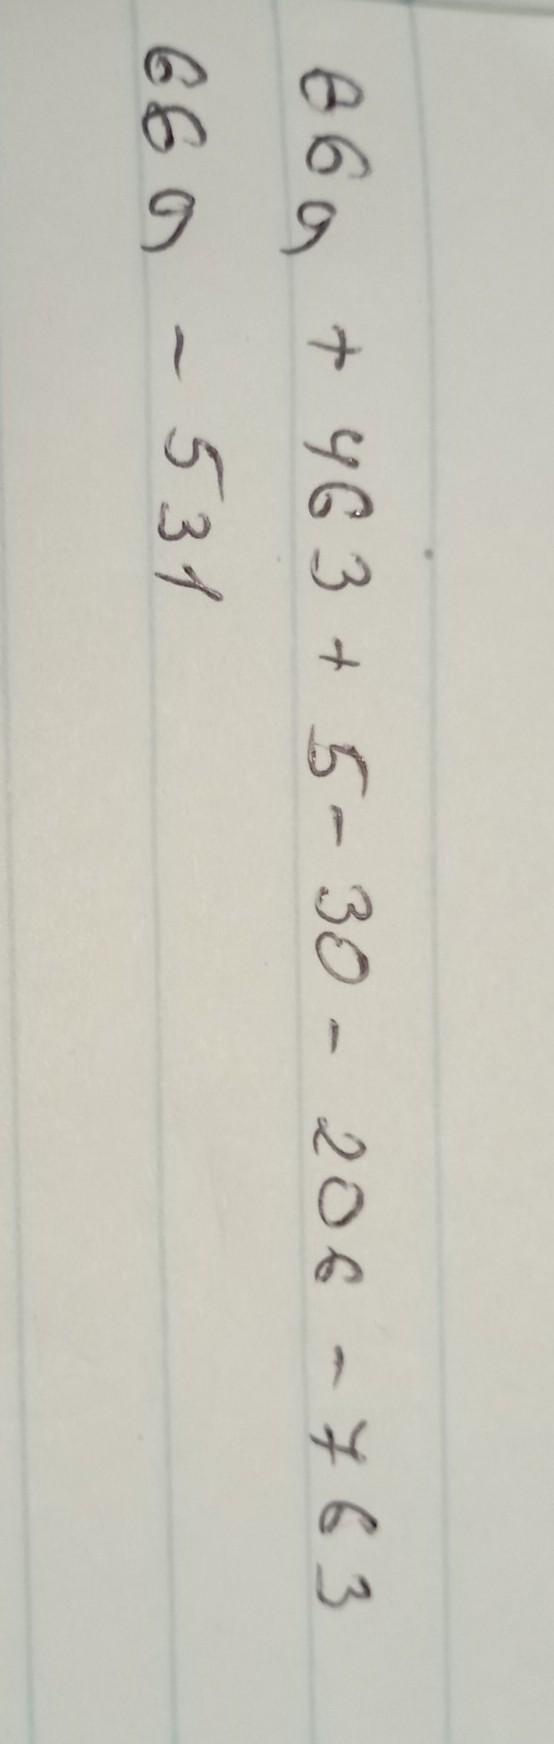 869 + 463 + 5 - 30 - 206 - 763
669 - 531